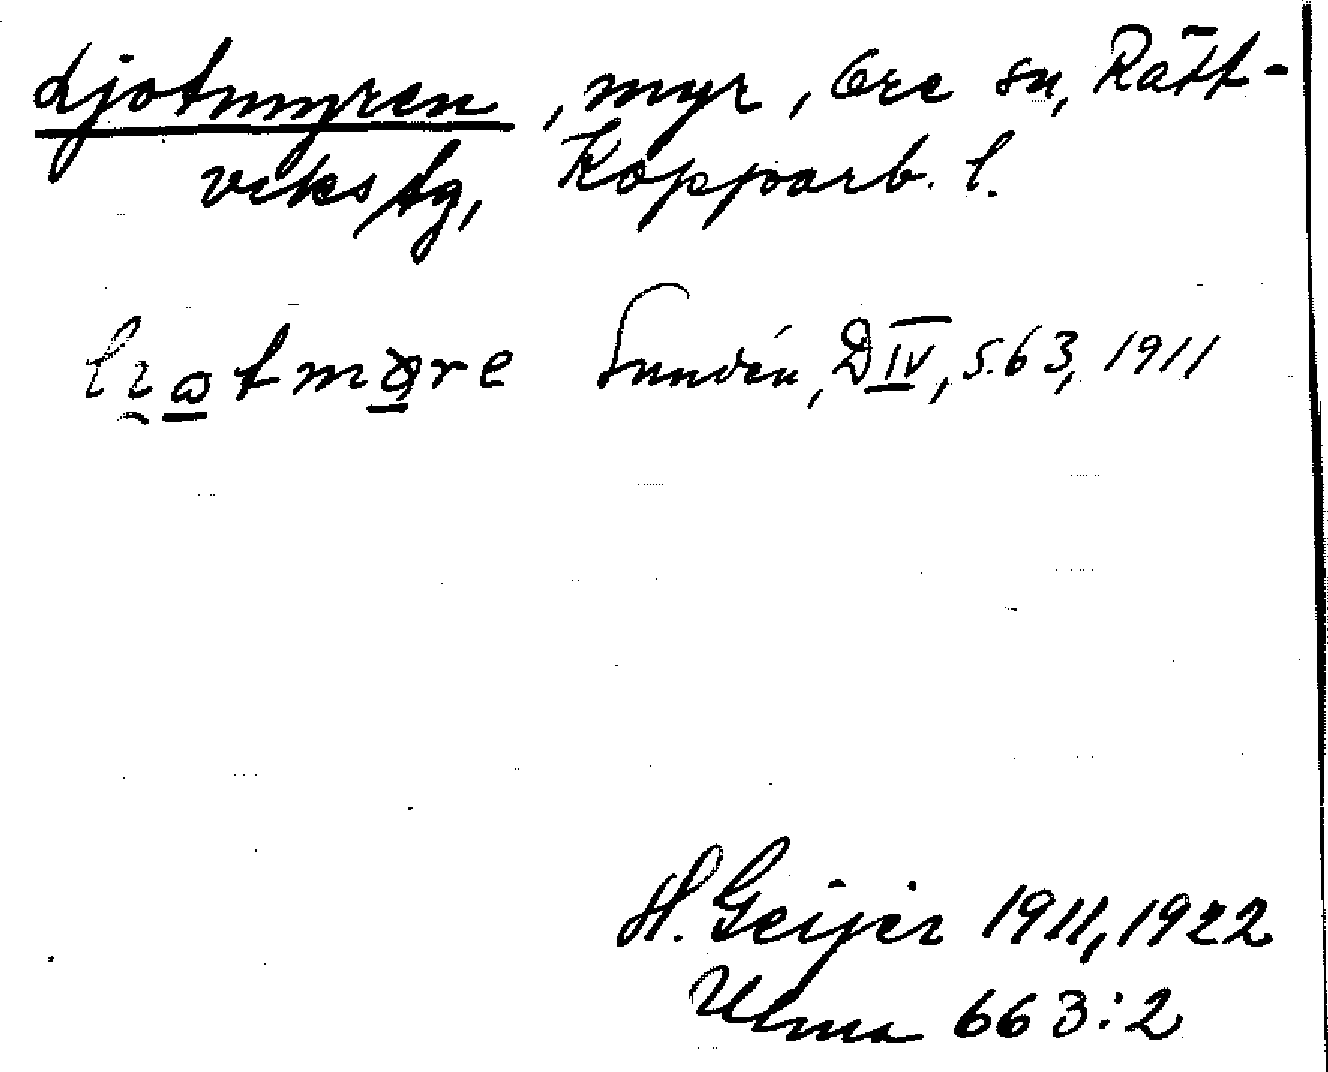 Ljotmyren, myr, Ore sn, Rätt-
viks tg, Kopparb. l.
Sundén, D IV, s. 63, 1911
H. Geijer 1911, 1922
Ulma 663:2